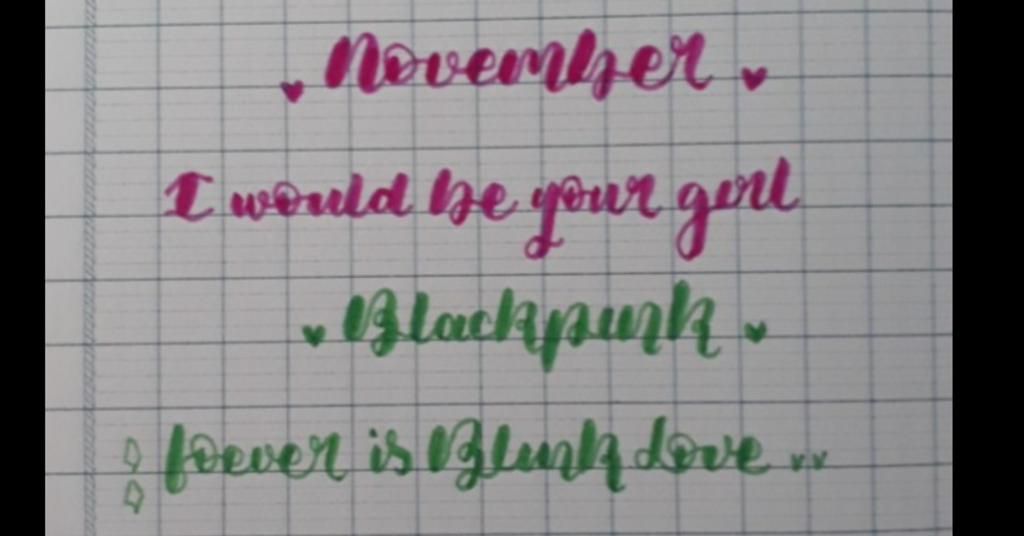 November
I would be your girl
Blackpink
foever is Blink love